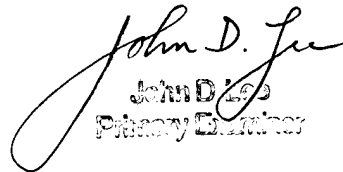 John D. Lee
John D Lee
Primary Examiner